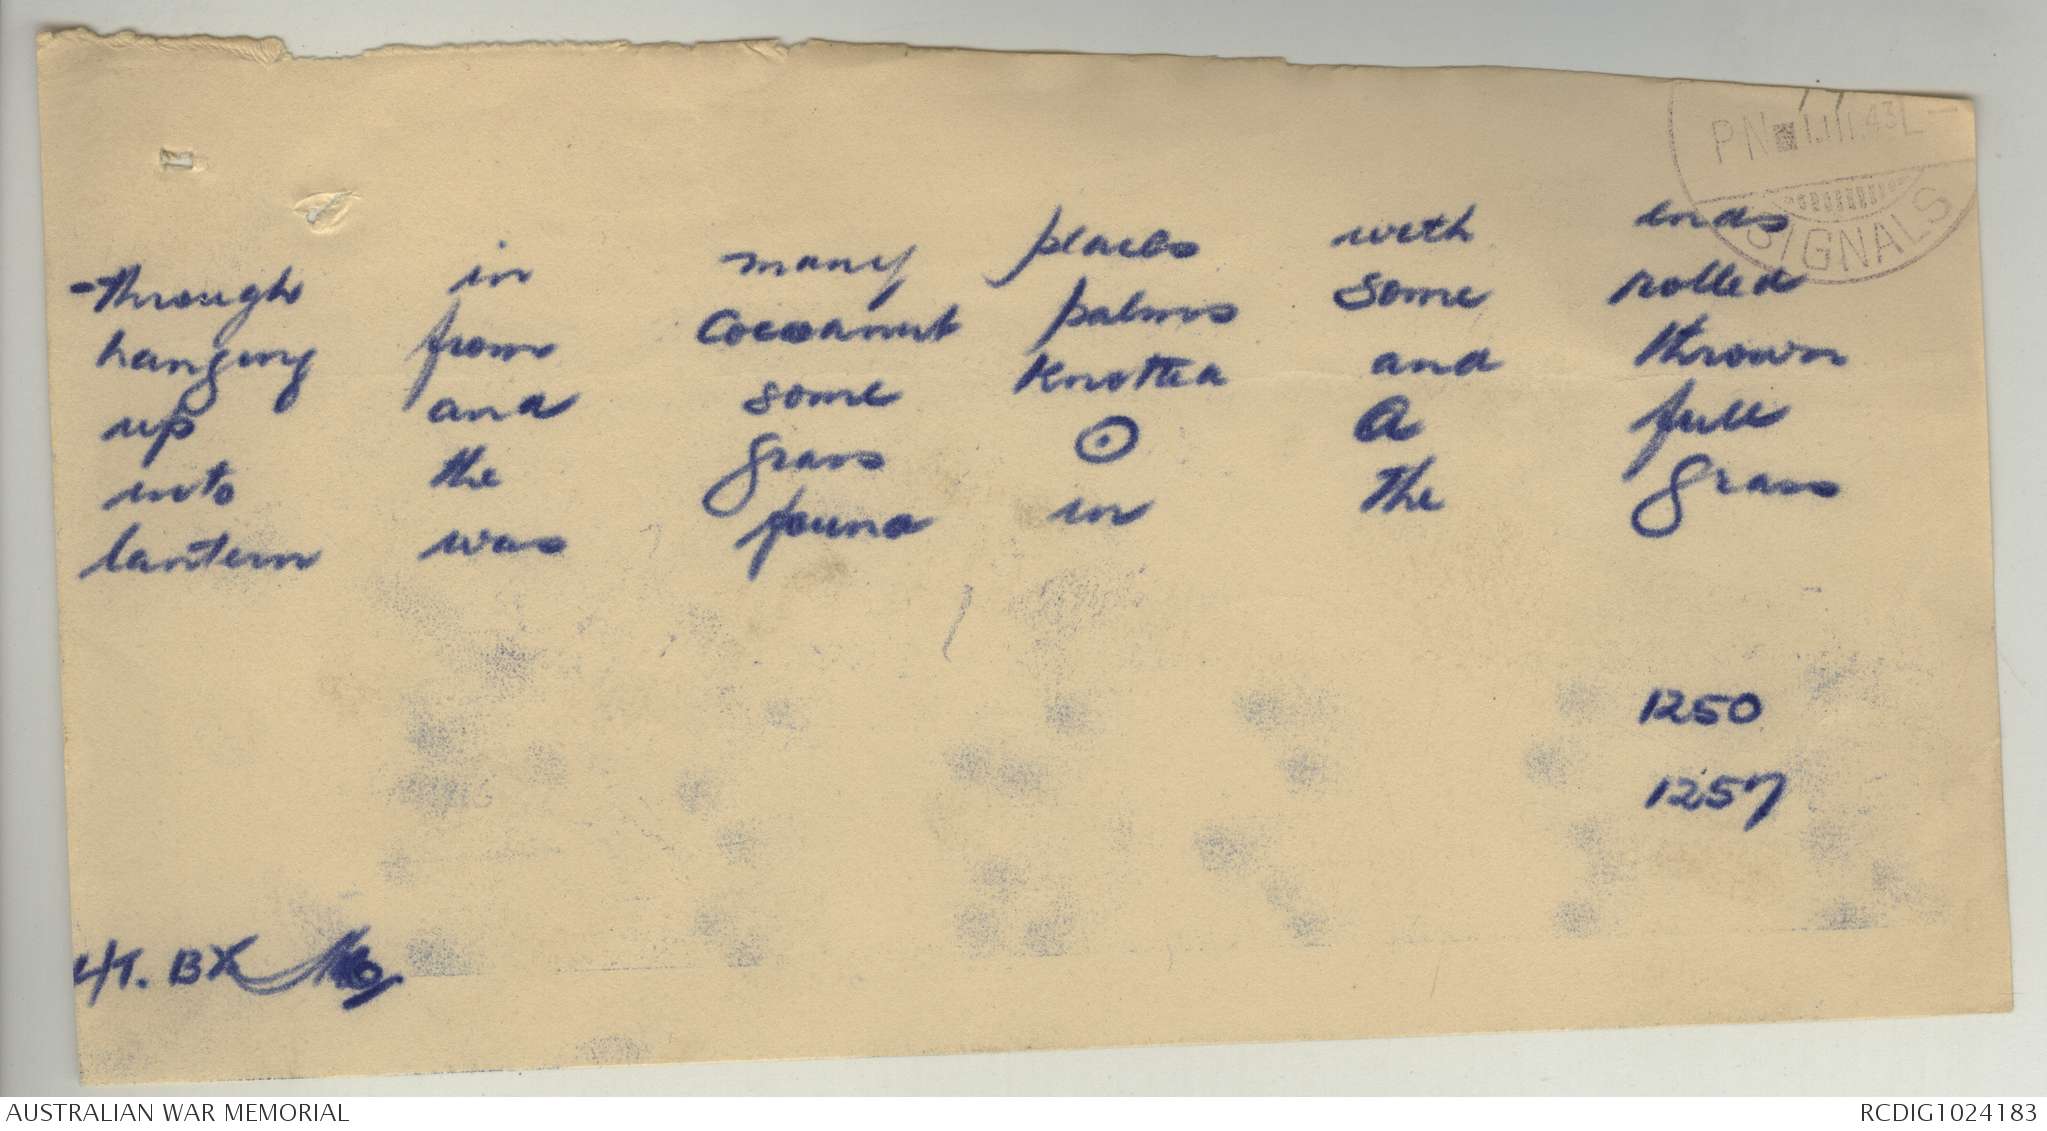 PN 1.III.43 L
SIGNALS
-through in many places with ends
hanging from cocoanut palms some rolled
up and some knotted and thrown
into the grass ⊙ A full
lantern was found in the grass
1250
1257
L/T. BX
AUSTRALIAN WAR MEMORIAL
RCDIG1024183